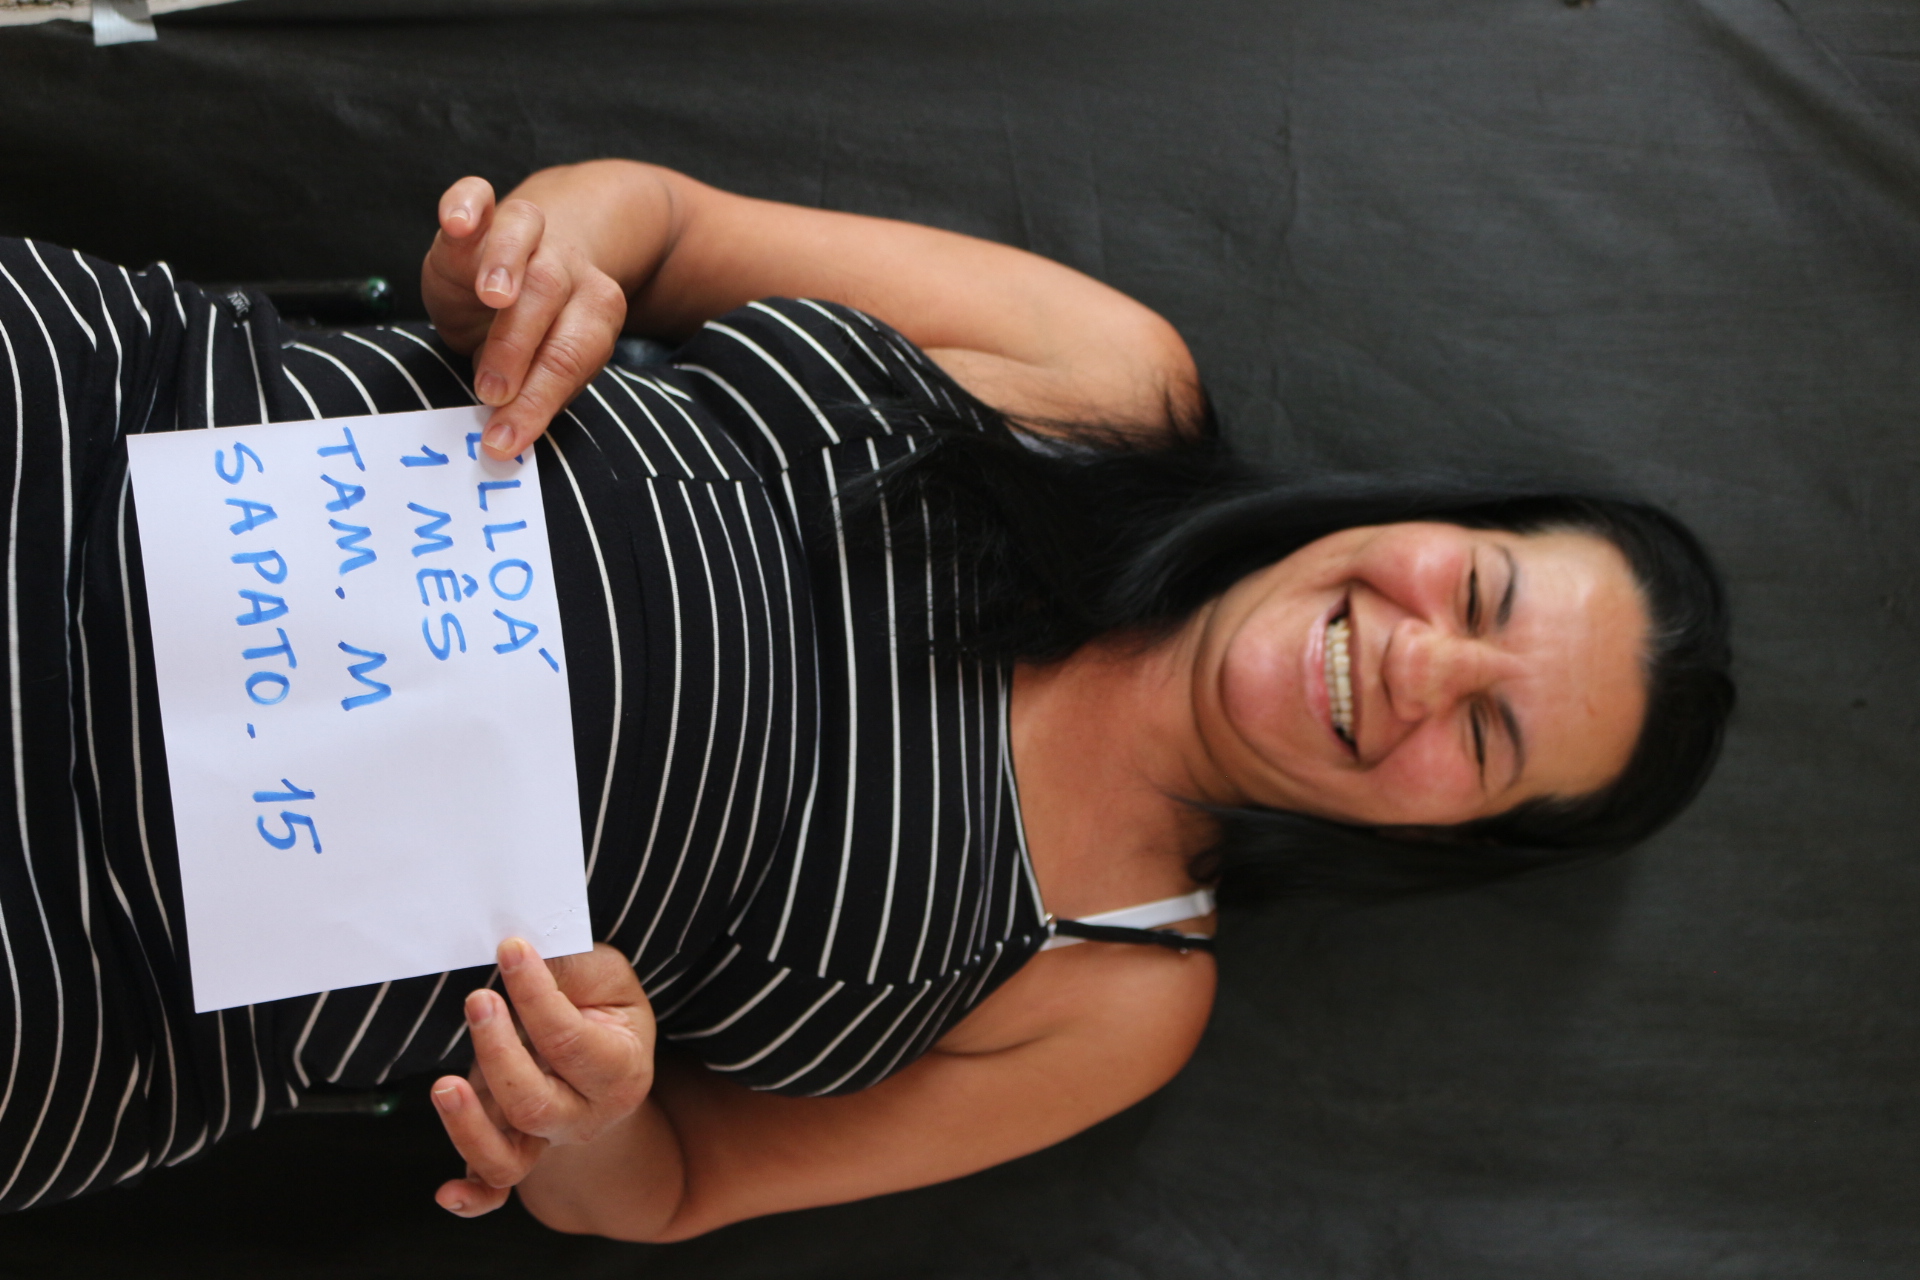 ELLOÁ
1 MÊS
TAM. M
SAPATO. 15